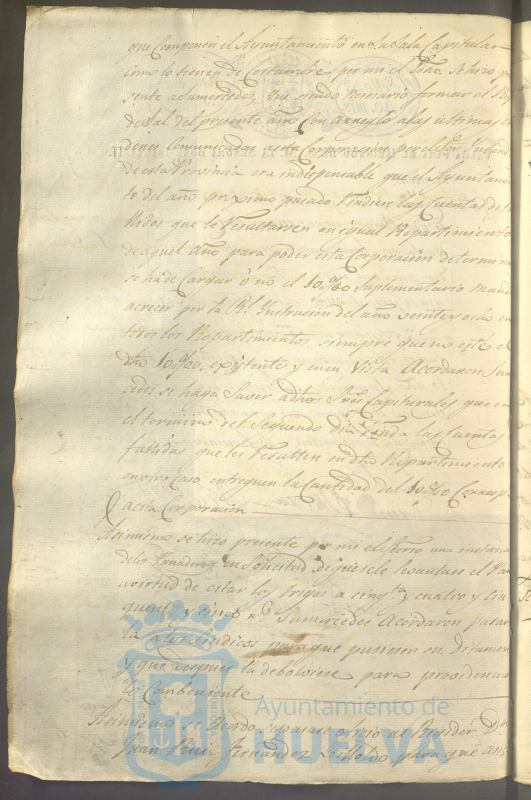 que componen el Ayuntamiento en la Sala Capitular
como lo tienen de costumbre por mi el Srio. se hizo pre
sente a sumercedes, que siendo necesario formar el Rep
de Sal del presente año con arreglo a las ultimas or
denes comunicadas a esta Corporacion por el Sor. Intend
de esta Provincia era indispensable que el Ayuntamien
to del año proximo pasado rindiese las cuentas de fa
llidos que le resultasen en igual Repartimiento
de aquel año para poder esta Corporacion determina
se ha de cargar ó no el 10 %0 suplementario manda
acrecer por la Rl. Instrucion del año veinte y ocho en
todos los Repartimientos siempre que no esté el
dho 10 %0, existente y en su vista Acordaron sum
cedes se haga saver a dhos Sres. Capitulares que en
el termino del segundo dia rinda las cuentas
fallidas que les resulten en dho Repartimiento
en otro caso entreguen la Cantidad del 10 %0 corresp
a esta Corporacion
Asimismo se hizo presente por mi el Srio una instanc
de los Panaderos en solicitud de que se le levantase el Pan
a virtud de estar los trigos a cinqta y cuatro y cin
quenta y cinco rs. Sumercedes Acordaron pasar
la a los sindicos para que pusiesen su dictamen
y que despues la debolviese para providencia
lo combeniente
Asimismo se Acordo se pasase oficio al Regidor Dn
Juan Ruiz Fernandez para que asis
Ayuntamiento de
HUELVA